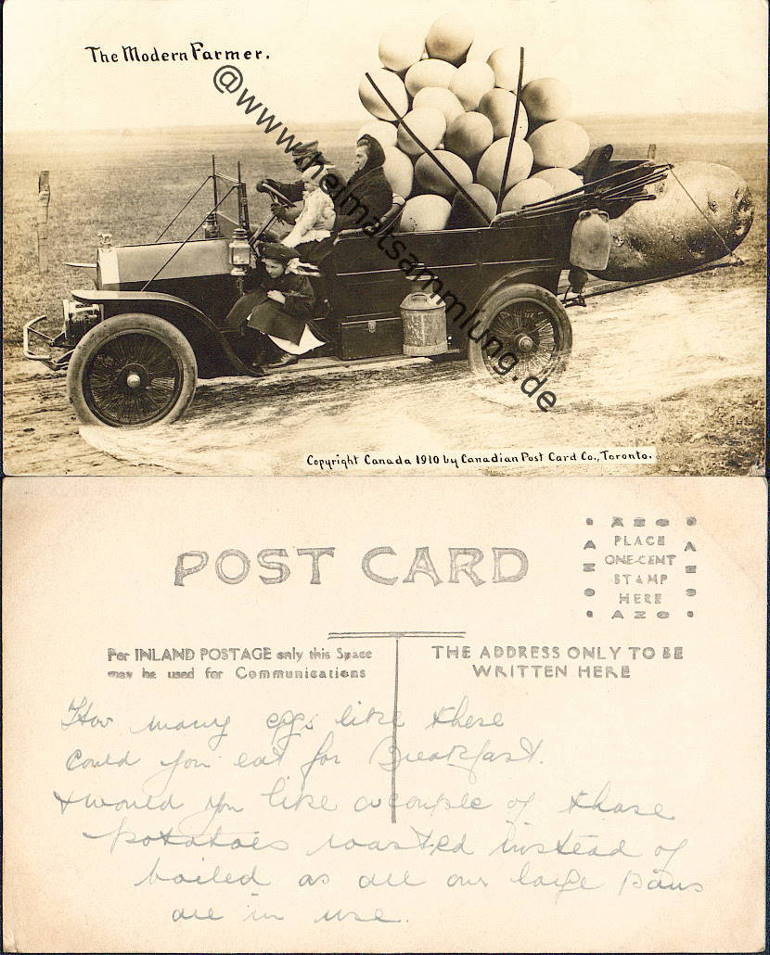 The Modern Farmer.
@www.heimatsammlung.de
Copyright Canada 1910 by Canadian Post Card Co., Toronto.
POST CARD
AZO
PLACE
ONE-CENT
STAMP
HERE
AZO
For INLAND POSTAGE only this Space
may be used for Communications
THE ADDRESS ONLY TO BE
WRITTEN HERE
How many eggs like these
could you eat for Breakfast.
+ would you like a couple of those
potatoes roasted instead of
boiled as all our large pans
are in use.